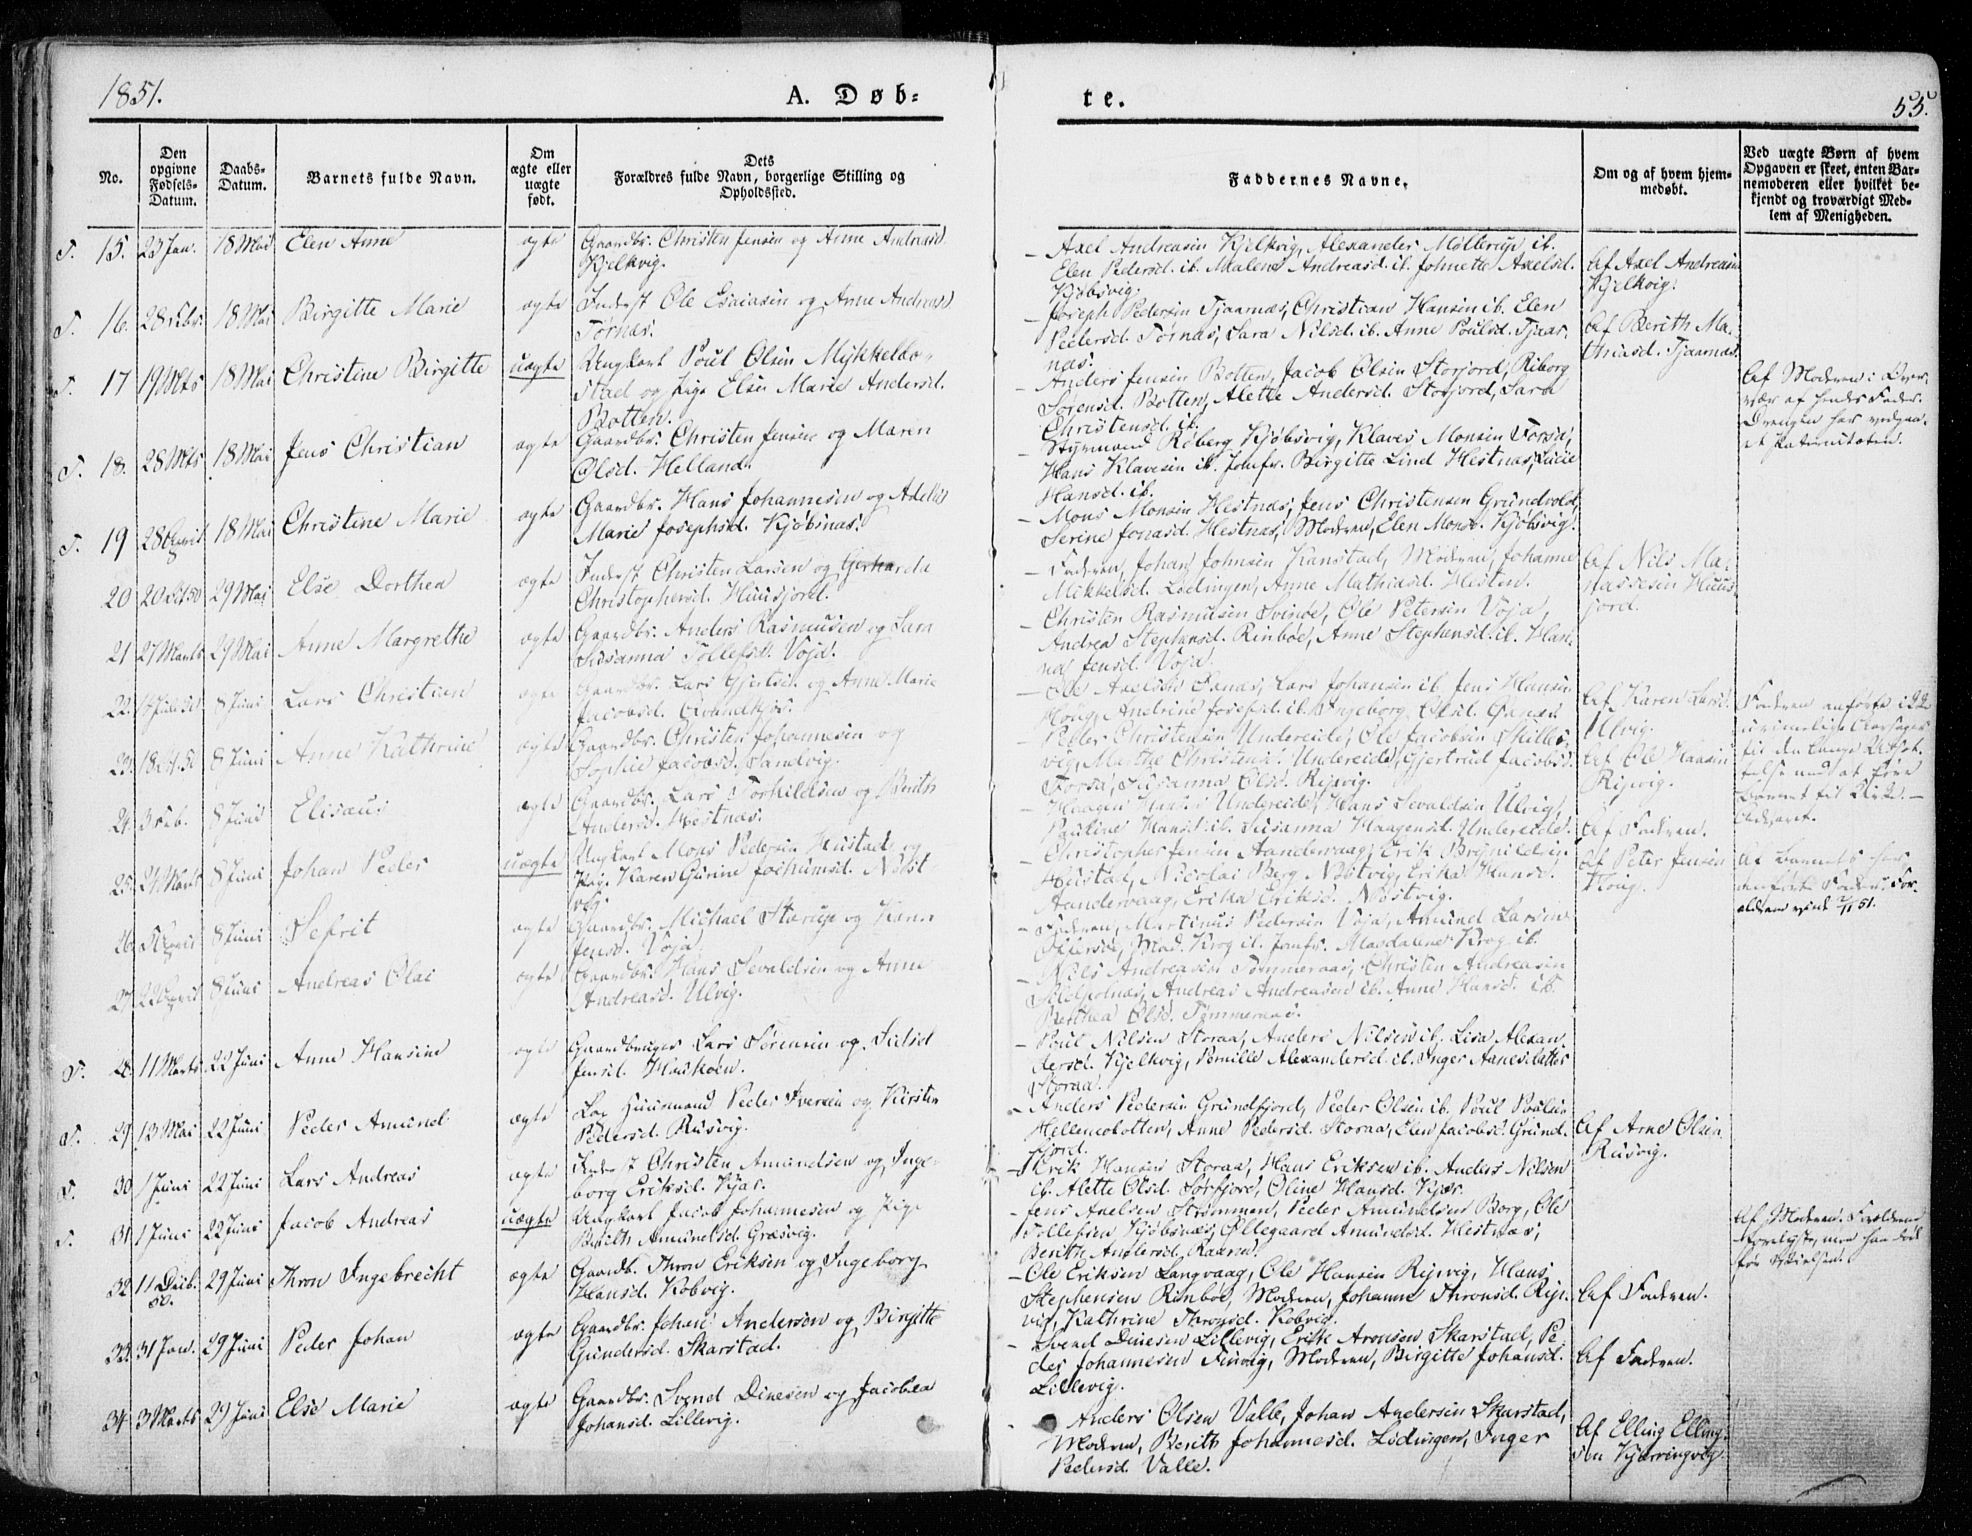 1851.
A. Døb=
te.
55.
No.
Den
opgivne
Fødsels-
Datum.
Daabs-
Datum.
Barnets fulde Navn.
Om
ægte eller
uægte
født.
Dets
Forældres fulde Navn, borgerlige Stilling og
Opholdssted.
Faddernes Navne.
Om og af hvem hjem-
medøbt.
Ved uægte Børn af hvem
Opgaven er skeet, enten Bar-
nemoderen eller hvilket be-
kjendt og troværdigt Med-
lem af Menigheden.
15. 23 Jan. 18 Mai Elen Anne ægte Gaardbr. Christen Jensen og Anne Andreasd.
Kjelkvig.
Axel Andreasen Kjelkvig, Alexander Møllerup ib.
Elen Pedersd. ib. Malene Andreasd. ib. Johnette Axelsd.
Kjøbsvig.
Af Axel Andreasen
Kjelkvig.
16. 28 Febr. 18 Mai Birgitte Marie ægte Inderst Ole Esaiasen og Anne Andreasd.
Tørnæs.
Joseph Pedersen Tjaarnæs, Christian Hansen ib. Elen
Pedersd. Tørnæs, Sara Nilsd. ib. Anne Poulsd. Tjaar-
næs.
Af Berith Ma-
thiasd. Tjaarnæs.
17 19 Mts 18 Mai Christine Birgitte uægte Ungkarl Poul Olsen Mykkelbo-
stad og Pige Elsen Marie Andersd.
Botten.
Anders Jensen Botten, Jacob Olsen Storjord, Riborg
Sørensd. Botten, Alette Andersd. Storjord, Sara
Christensd. ib.
Af Moderen i Over-
vær af hendes Fader.
Drengen har vedgaa-
et Paterniteten.
18. 28 Mts 18 Mai Jens Christian ægte Gaardbr. Christen Jensen og Maren
Olsd. Helland.
Styrmand Roberg Kjøbsvig, Klaves Monsen Forsaa,
Hans Klavesen ib. Jomfr. Birgitte Lind Hestnæs, Lucie
Hansd. ib.
19 28 April 18 Mai Christine Marie ægte Gaardbr. Hans Johannesen og Adellis
Marie Josephsd. Kjøbsnæs.
Mons Monsen Hestnæs, Jens Christensen Grundvold,
Serine Jonasd. Hestnæs, Moderen, Elen Monsd. Kjøbsvig.
20 20 Oct 50 29 Mai Else Dorthea ægte Inderst Christen Larsen og Gerharda
Christophersd. Huusjord.
Faderen, Johan Johnsen Kanstad, Moderen, Johanne
Mikkelsd. Lødingen, Anne Mathiasd. Hesten.
Af Nils Ma-
nassesen Huus-
jord.
21 27 Marts 29 Mai Anne Margrethe ægte Gaardbr. Anders Rasmusen og Sara
Susanna Tollefsd. Voja.
Christen Rasmusen Svinøe, Ole Petersen Voja,
Andrea Stephensd. Rinbøe, Anne Stephensd. ib. Han-
na Jensd. Voja.
22. 8 Juni Lars Christian ægte Gaardbr. Lars Gjertsen og Anne Marie
Jacobsd.
Ole Axelsen Fanæs, Lars Johansen ib. Jens Hansen
Houg, Andrine Josephsd. ib. Ingeborg Olsd. Øxnæs.
Af Karen Larsd.
Ulvig.
Faderen anførte i 22
urimelige Aarsager
for den lange Udsæt-
telse med at føre
Barnet til Kirke. —
Advaret.
23. 18 Oct. 50 8 Juni Anne Kathrine ægte Gaardbr. Christen Johannesen og
Sophie Jacobsd. Sandvig.
Peder Christensen Undereide, Ole Jacobsen Skille-
vig, Marthe Christensd. Undereide, Gjertrud Jacobsd.
Forsaa, Susanna Olsd. Ripvig.
Af Ole Hansen
Ripvig.
24. 3 Feb. 8 Juni Elisæus ægte Gaardbr. Lars Torkildsen og Berith
Andersd. Hestnæs.
Haagen Hansen Undereide, Hans Sevaldsen Ulvig,
Pauline Hansd. ib. Susanna Haagensd. Undereide.
Af Faderen.
25. 21 Marts 8 Juni Johan Peder uægte Ungkarl Mons Pedersen Hustad og
Pige Karen Gurine Jochumsd. Nøst-
vig.
Christopher Jensen Aandervaag, Erik Brynildsen
Hustad, Nicolai Berg Nøstvig, Erika Hansd.
Aandervaag, Erika Eriksd. Nøstvig.
Af Peter Jensen
Houg.
Af Barnets
Faders For-
51.
26. April 8 Juni Sefrit ægte Gaardbr. Michael Størup og Karen
Jensd. Voja.
Faderen, Martinus Pedersen Voja, Amund Larsen
Offersøe, Mad. Krog ib. Jomfr. Magdalene Krog ib.
27. 22 April 8 Juni Andreas Olai ægte Gaardbr. Hans Sevaldsen og Anne
Andreasd. Ulvig.
Nils Andreasen Tømmeraas, Christen Andreasen
Andreas Andreasen ib. Anne Hansd. ib.
Berthea Olsd. Tømmeraas.
28. 11 Marts 22 Juni Anne Hansine ægte Gaardbruger Lars Sørensen og Sidsel
Jensd. Haukøen.
Poul Nilsen Storaa, Anders Nilsen ib. Lisa Alexan-
dersd. Kjelkvig, Pernille Alexandersd. ib. Inger Aanesdatter
Storaa.
29. 13 Mai 22 Juni Peder Amund ægte Lap Huusmand Peder Iversen og Kirsten
Pedersd. Rusvig.
Anders Pedersen Grundfjord, Peder Olsen ib. Poul Poulsen
Hellemobotten, Anne Pedersd. Storaa, Elen Jacobsd. Grund-
fjord.
Af Arne Olsen
Rusvig.
30 1 Juni 22 Juni Lars Andreas ægte Inderst Christen Amundsen og Inge-
borg Eriksd. Kjær.
Erik Hansen Storaa, Hans Eriksen ib. Anders Nilsen
ib. Alette Olsd. Sørfjord, Oline Hansd. Kjær.
31 1 Juni 22 Juni Jacob Andreas uægte Ungkarl Jacob Johannesen og Pige
Berith Amundsd. Græsvig.
Jens Axelsen Strømmen, Peder Amundsen Borg, Ole
Tollefsen Kjøbsnæs, Øllegaard Amundsd. Hestnæs,
Berith Andersd. Raaren.
Af Moderen. Forældrene
trovelyste, men han død
før Vielsen.
32. 11 Decb. 50. 29 Juni Thron Ingebrecht ægte Gaardb. Thron Eriksen og Ingeborg
Hansd. Kobvig.
Ole Eriksen Langvaag, Ole Hansen Ripvig, Hans
Stephensen Rinbøe, Moderen, Johanne Thronsd. Rip-
vig, Kathrine Thronsd. Kobvig.
Af Faderen.
33. 31 Jan. 29 Juni Peder Johan ægte Gaardbr. Johan Andersen og Birgitte
Gundersd. Skarstad.
Svend Dinesen Lillevig, Erik Aronsen Skarstad, Pe-
der Johannesen Finvig, Moderen, Birgitte Johansd.
Lillevig.
Af Faderen.
34 3 Marts 29 Juni Else Marie ægte Gaardbr. Svend Dinesen og Jacobea
Johansd. Lillevig.
Anders Olsen Valle, Johan Andersen Skarstad,
Moderen, Berith Johannesd. Lødingen, Inger
Pedersd. Valle.
Af Elling Elling-
sen Kjærringvig.